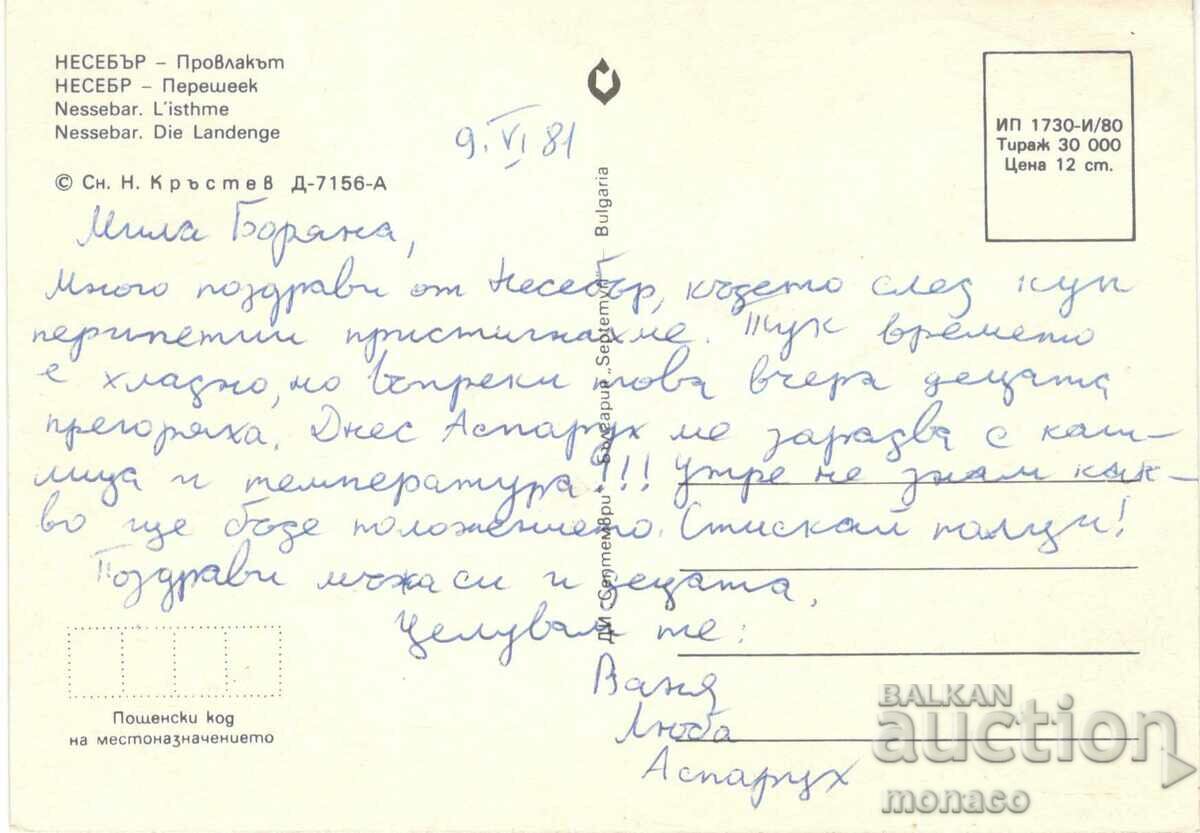 НЕСЕБЪР – Провлакът
НЕСЕБР – Перешеек
Nessebar. L'isthme
Nessebar. Die Landenge
© Сн. Н. Кръстев Д-7156-А
9. VI 81
ИП 1730-И/80
Тираж 30 000
Цена 12 ст.
Мила Боряна,
Много поздрави от Несебър, където след куп
перипетии пристигнахме. Тук времето
е хладно, но въпреки това вчера децата
прегоряха. Днес Аспарух ме зарадва с каш-
лица и температура!!! Утре не знам как-
во ще бъде положението. Стискай палци!
Поздрави мъжа си и децата,
Целувам те:
Ваня
Люба
Аспарух
ДИ „Септември" • България „Septemvri" – Bulgaria
Пощенски код
на местоназначението
BALKAN
auction
monaco